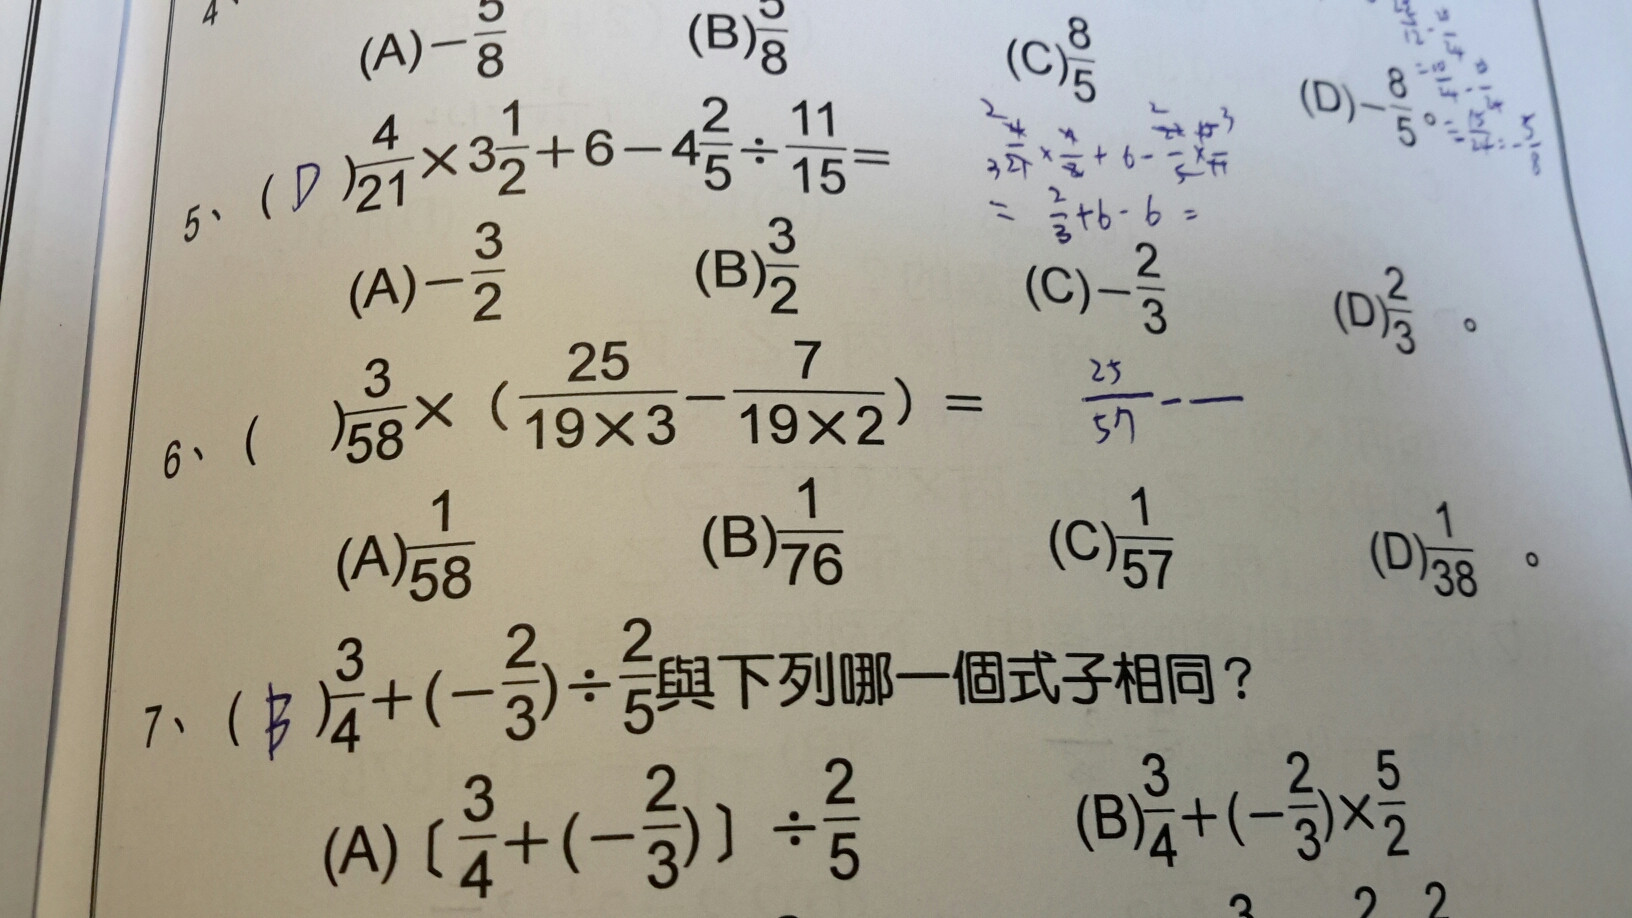 4、
(A)−5/8 (B)5/8 (C)8/5 (D)−8/5。
5、( D )4/21×3 1/2+6−4 2/5÷11/15=
= 2/3+6-6 =
(A)−3/2 (B)3/2 (C)−2/3 (D)2/3。
6、( )3/58×(25/(19×3)−7/(19×2))= 25/57 - —
(A)1/58 (B)1/76 (C)1/57 (D)1/38。
7、( B )3/4+(−2/3)÷2/5與下列哪一個式子相同？
(A)〔3/4+(−2/3)〕÷2/5 (B)3/4+(−2/3)×5/2
3 2 2